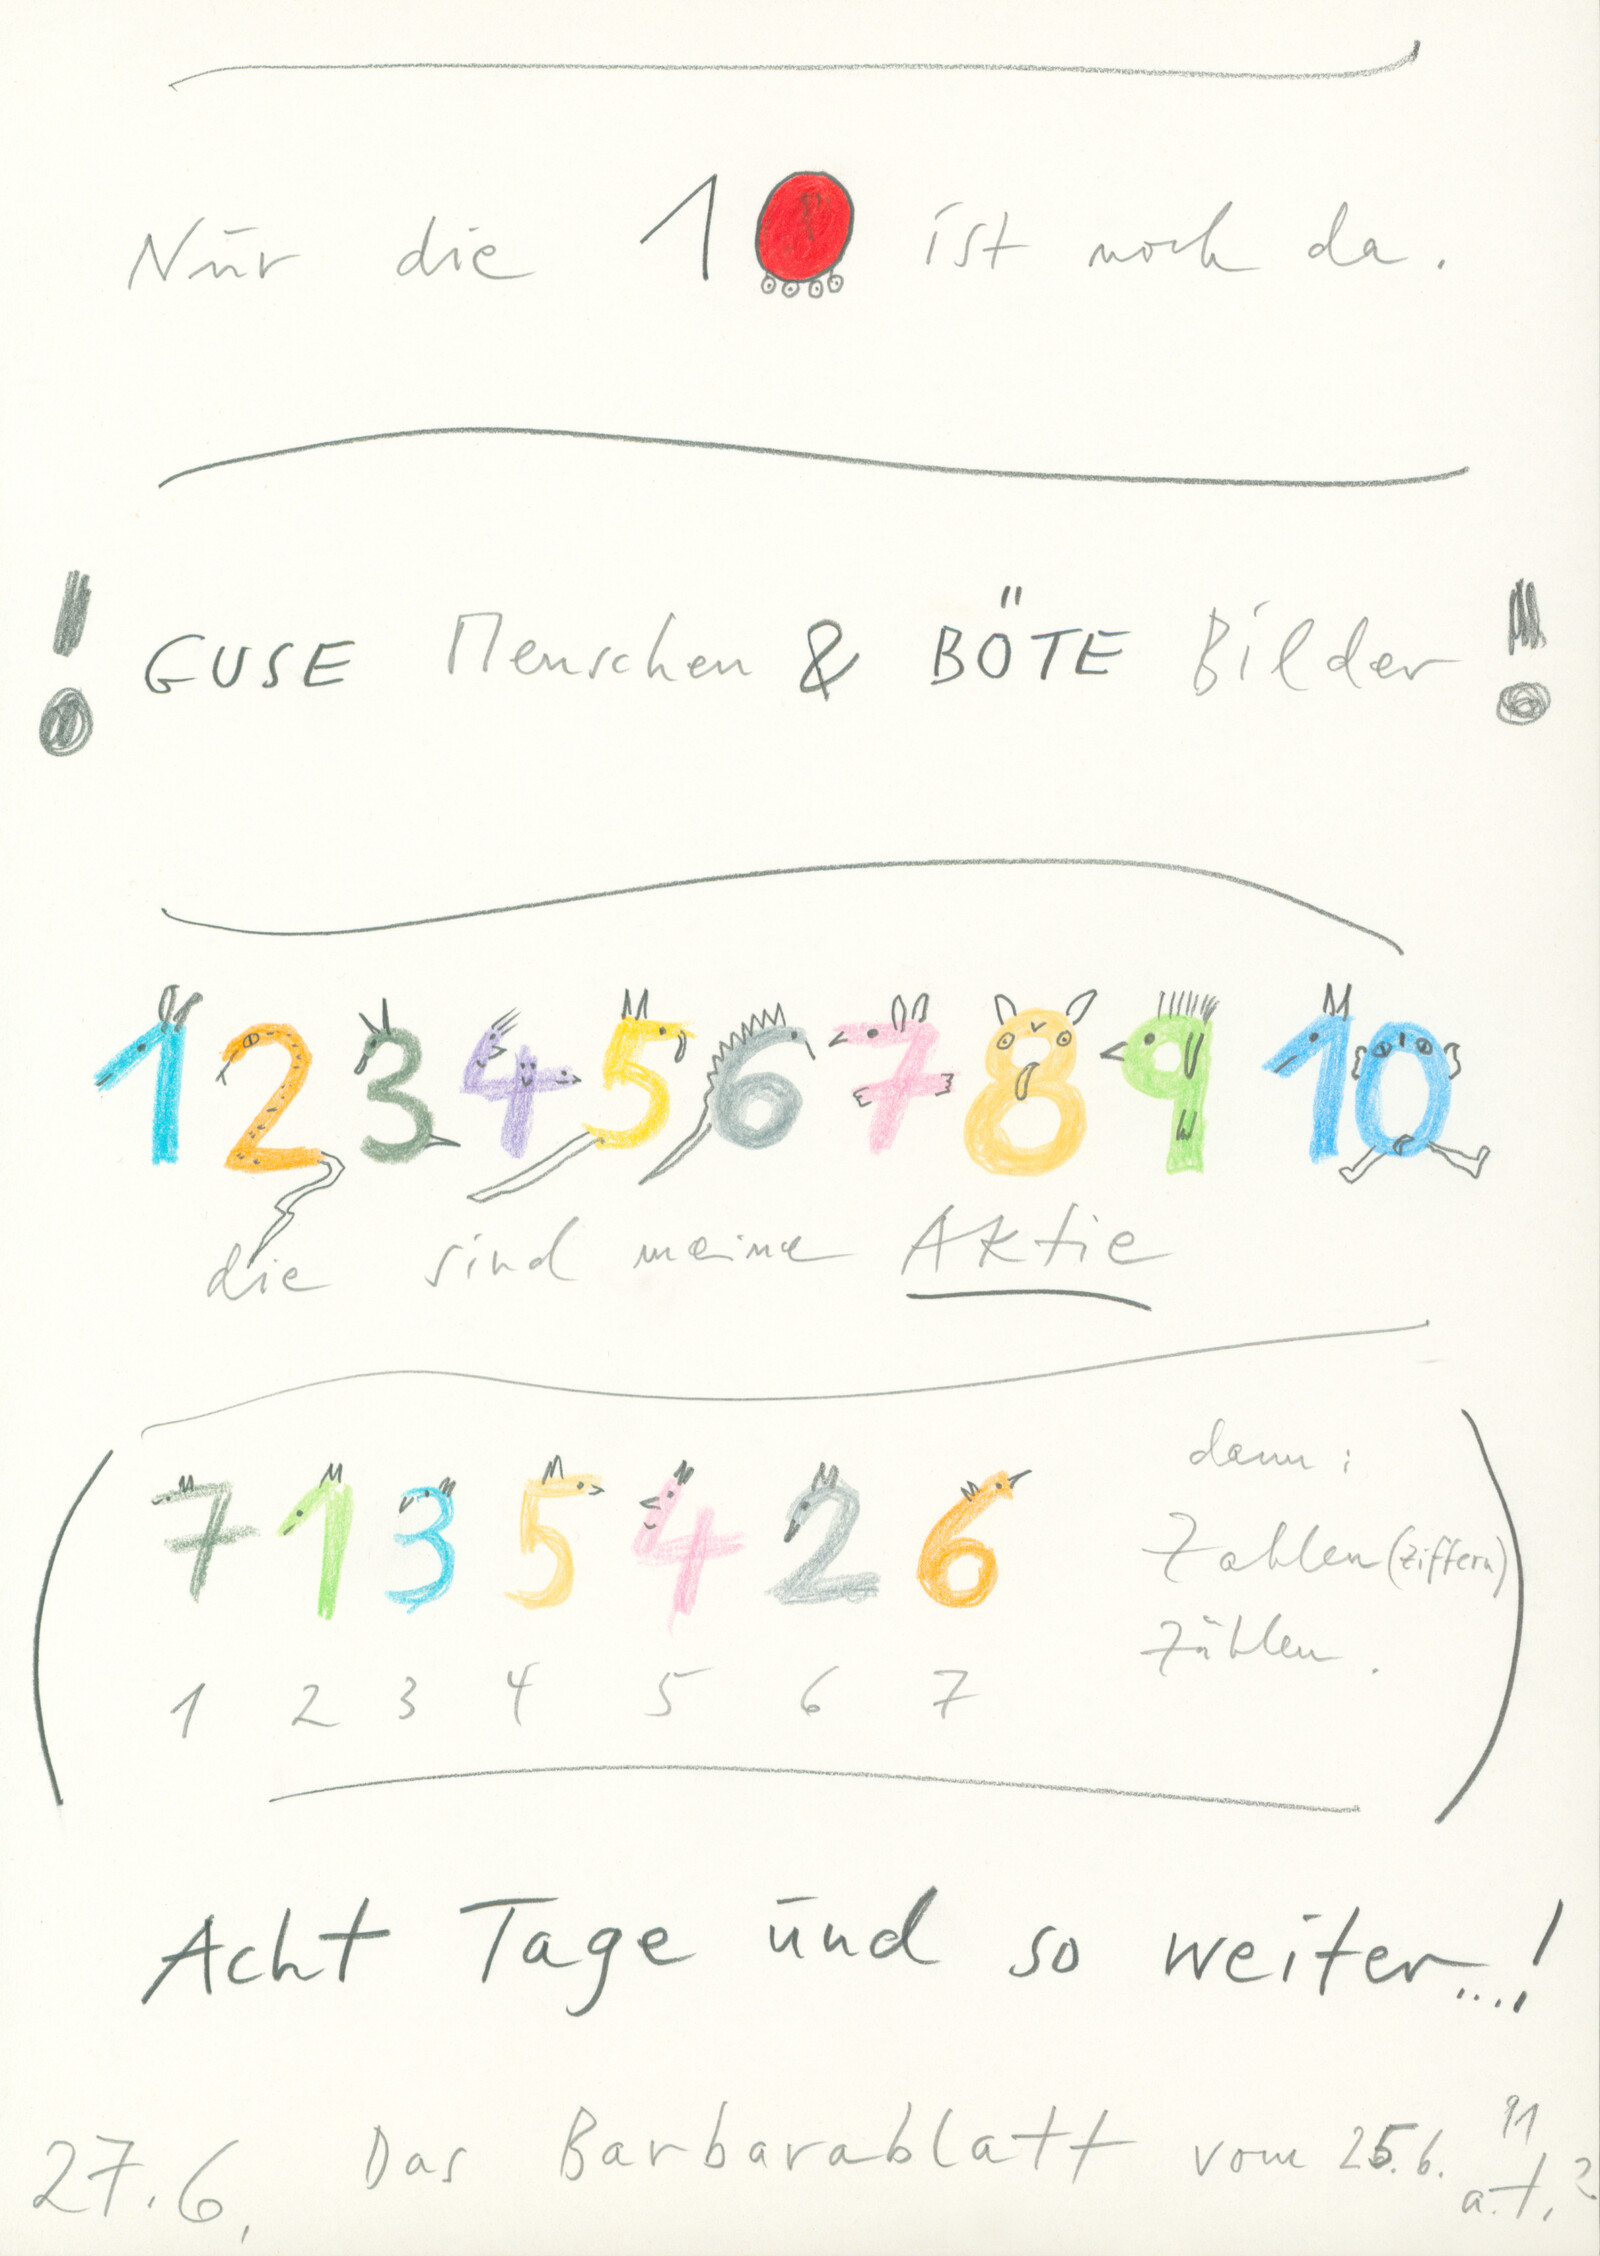 Nur die 10 ist noch da.
! GUSE Menschen & BÖTE Bilder !
1 2 3 4 5 6 7 8 9 10
die sind meine Aktie
(7 1 3 5 4 2 6
1 2 3 4 5 6 7
dann:
Zahlen (Ziffern)
Zählen.)
Acht Tage und so weiter...!
27.6. Das Barbarablatt vom 25.6. 91
a.t.